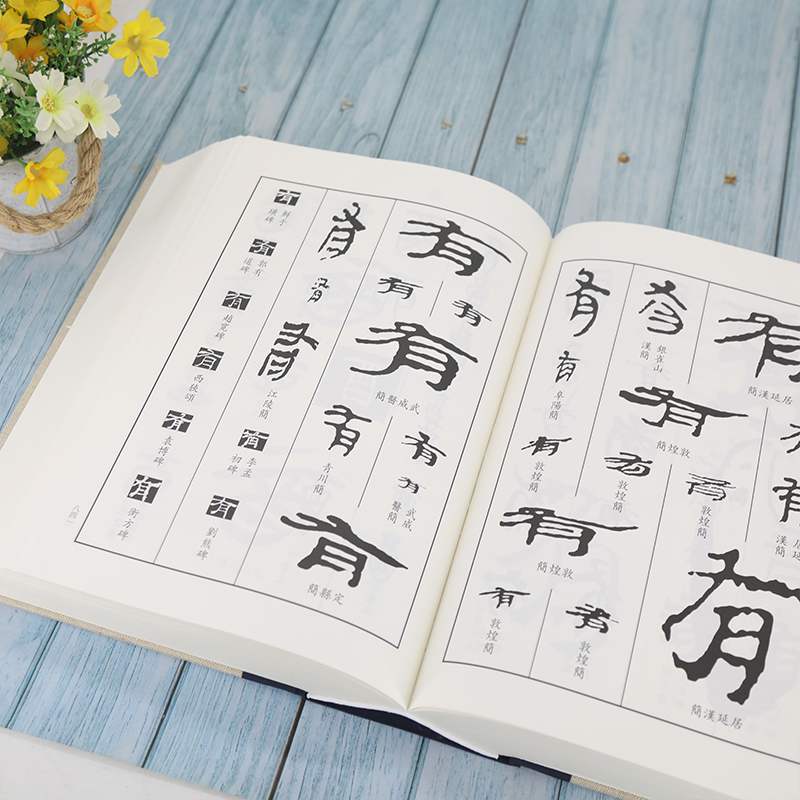 有
居延漢簡
有
有
居延漢簡
有
居延漢簡
有
銀雀山
漢簡
有
敦煌簡
有
敦煌簡
有
敦煌簡
有
有
阜陽簡
有
敦煌簡
有
敦煌簡
有
敦煌簡
有
敦煌簡
有
有
有
有
武威醫簡
有
有
武威
醫簡
有
青川簡
有
定縣簡
有
有
有
江陵簡
有
李孟
初碑
有
劉熊碑
有
鮮于
璜碑
有
郭有
道碑
有
趙寬碑
有
西狹頌
有
袁博碑
有
衡方碑